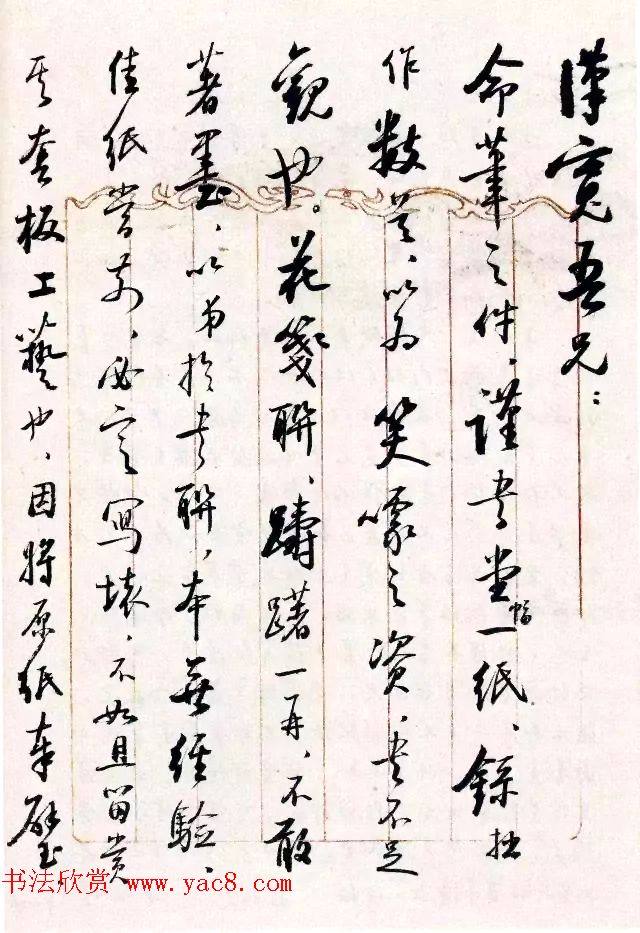 漢寬吾兄：
命筆之件，謹書堂幅一紙、錄拙
作數首，以為笑噱之資，書不足
觀也。花箋聯，躊躇一再，不敢
著墨，以弟於書聯，本無經驗，
佳紙當前，必定寫壞，不如且留賞
其套板工藝也，因將原紙奉璧
书法欣赏 www.yac8.com